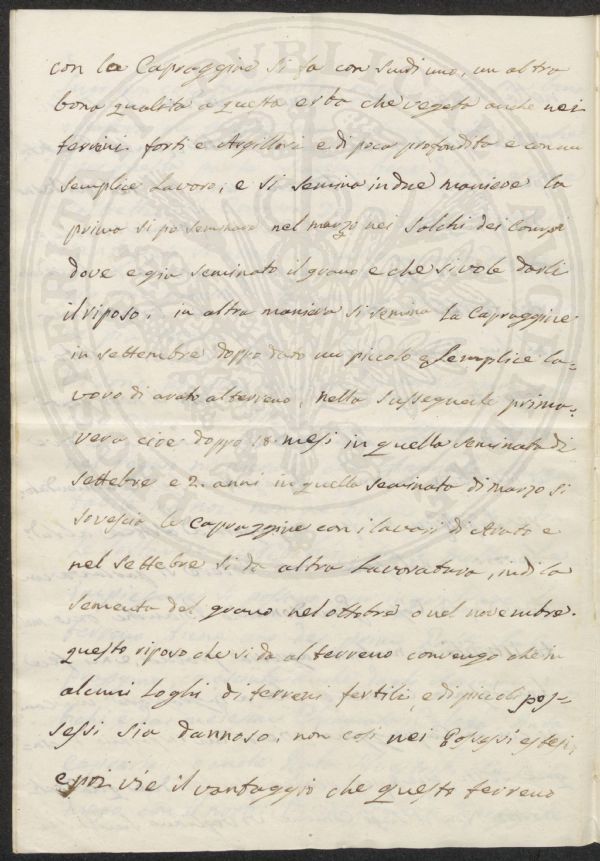 con la Capraggine si fa con sudi uno, un altra
bona qualità a questa erba che vegeta anche nei
terreni forti e Argillosi e di poca profondità e con un
semplice Lavoro; e si semina in due maniere la
prima si po seminare nel marzo nei Solchi dei Campi
dove e gia seminato il grano e che si vole darli
il riposo. in altra maniera si semina La Capraggine
in settembre doppo dato un piccolo e Semplice la=
voro di arato al terreno, nella susseguente prima=
vera cioe doppo 18. mesi in quella Seminata di
settebre e 2. anni in quella seminata di marzo si
sovescia la Capraggine con i lavori di Arato e
nel settebre si da altra Lavoratura, indi la
sementa del grano nel ottobre o nel novembre.
questo riposo che si da al terreno convengo che in
alcuni Loghi di terreni fertili, e di piccoli pos=
sessi sia dannoso, non così nei Possessi estesi,
e poi vie il vantaggio che questo terreno